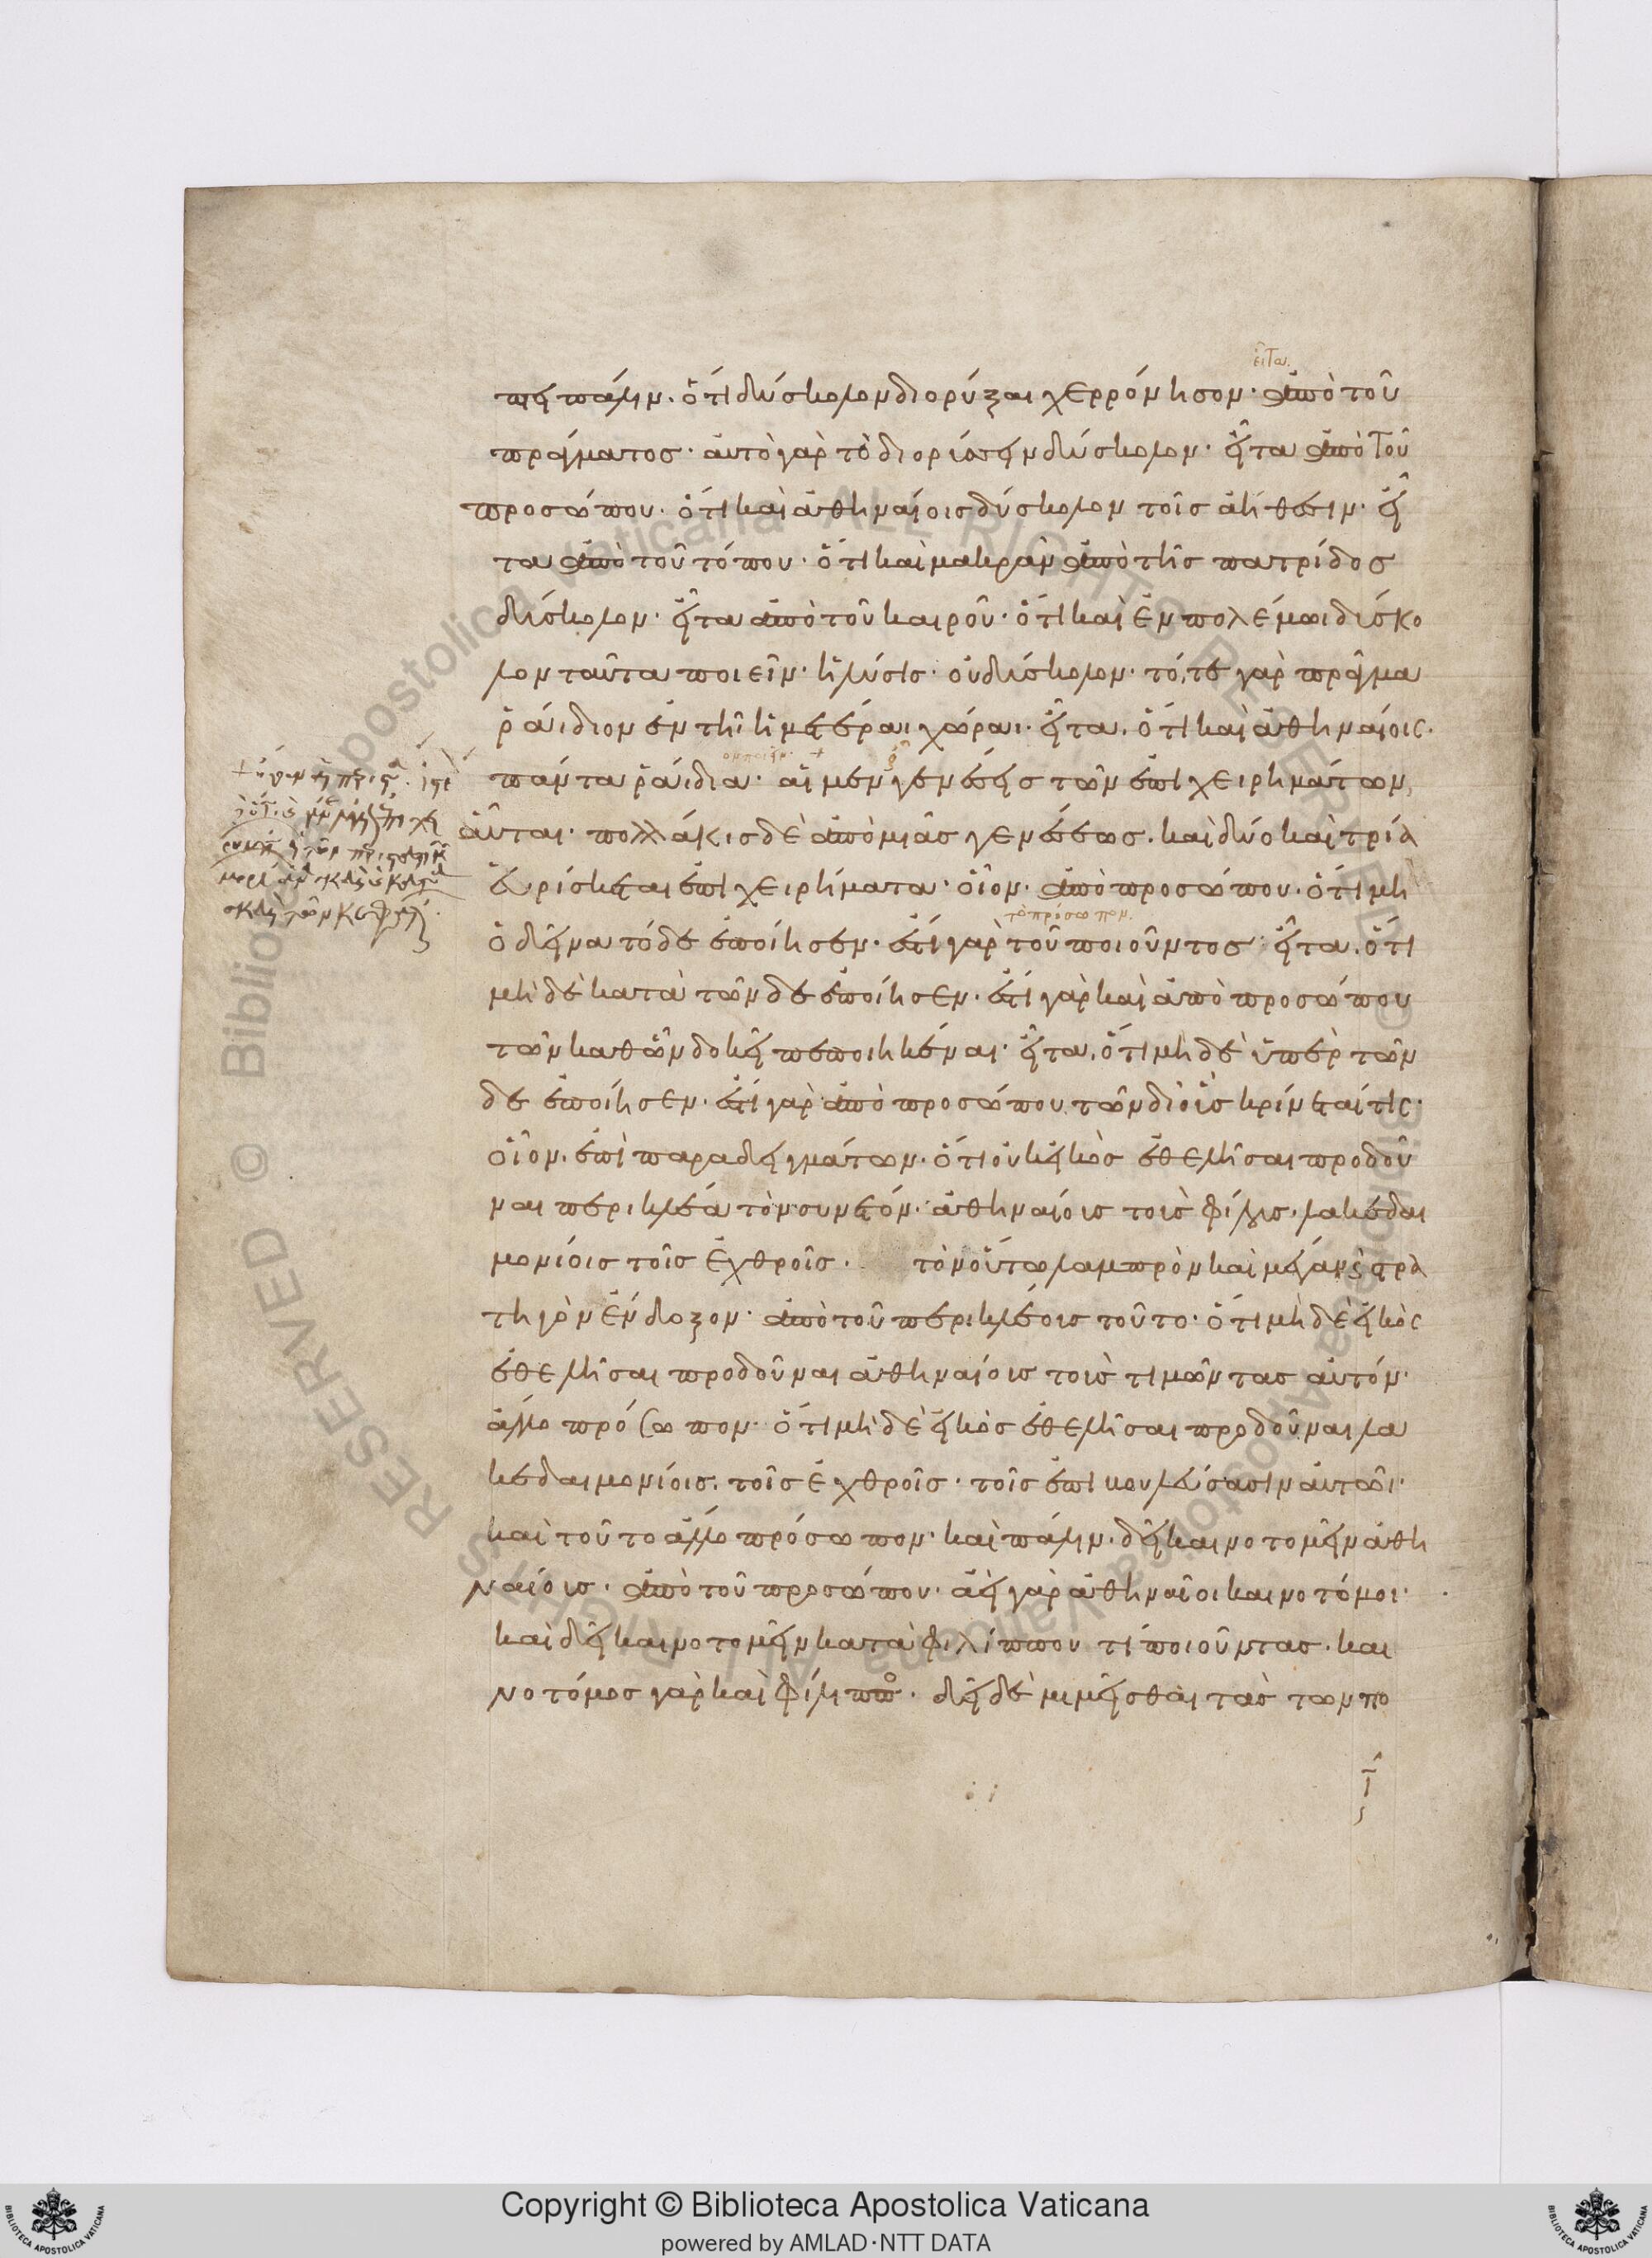 εἶτα
πει πάλιν· ὅτι δύσκολον διορύξαι χερρόνησον· ἀπὸ τοῦ
πράγματος· αὐτὸ γὰρ τὸ διορύσσειν δύσκολον· εἶτα ἀπὸ τοῦ
προσώπου· ὅτι καὶ ἀθηναίοις δύσκολον τοῖς ἀήθεσιν· εἶ
τα ἀπὸ τοῦ τόπου· ὅτι καὶ μακρὰν ἀπὸ τῆς πατρίδος
δύσκολον· εἶτα ἀπὸ τοῦ καιροῦ· ὅτι καὶ ἐν πολέμωι δύσκο
λον ταῦτα ποιεῖν· ἡ λύσις· οὐ δύσκολον· τό, τε γὰρ πρᾶγμα
ῥάιδιον ἐν τῆι ἡμετέραι χώραι· εἶτα, ὅτι καὶ ἀθηναίοις·
πάντα ῥάιδια· αἱ μὲν γενέσεις τῶν ἐπιχειρημάτων
αὗται· πολλάκις δὲ ἀπὸ μιᾶς γενέσεως· καὶ δύο καὶ τρία
εὑρίσκεται ἐπιχειρήματα· οἷον· ἀπὸ προσώπου· ὅτι μὴ
τὸ πρόσωπον·
ὁ δεῖνα τόδε ἐποίησεν· ἔτι γὰρ τοῦ ποιοῦντος· εἶτα, ὅτι
μὴ δὲ κατὰ τῶνδε ἐποίησεν· ἔτι γὰρ καὶ ἀπὸ προσώπου
τῶν καθ ὧν δοκεῖ πεποιηκέναι· εἶτα, ὅτι μὴ δὲ ὑπὲρ τῶν
δε ἐποίησεν· ἔτι γὰρ ἀπὸ προσώπου τῶν δι οὓς κρίνεταί τις·
οἷον· ἐπὶ παραδειγμάτων· ὅτι οὐκ εἰκὸς ἐθελῆσαι προδοῦ
ναι περικλέα τὸν συνετόν· ἀθηναίους τοὺς φίλους· λακεδαι
μονίοις τοῖς ἐχθροῖς· τὸν οὕτω λαμπρὸν καὶ μέγαν στρα
τηγὸν ἔνδοξον· ἀπὸ τοῦ περικλέους τοῦτο· ὅτι μὴ δὲ εἰκὸς
ἐθελῆσαι προδοῦναι ἀθηναίους τοὺς τιμῶντας αὐτόν·
ἄλλο πρόσωπον· ὅτι μὴ δὲ εἰκὸς ἐθελῆσαι προδοῦναι λα
κεδαιμονίοις· τοῖς ἐχθροῖς· τοῖς ἐπιβουλεύσασιν αὐτῶι·
καὶ τοῦτο ἄλλο πρόσωπον· καὶ πάλιν· δεῖ καινοτομεῖν ἀθη
ναίους· ἀπὸ τοῦ προσώπου· ἀεὶ γὰρ ἀθηναῖοι καινοτόμοι·
καὶ δεῖ καινοτομεῖν κατὰ φιλίππου τί ποιοῦντας· και
νοτόμος γὰρ καὶ φίλιππος· δεῖ δὲ μιμεῖσθαι τὰς τῶν πο